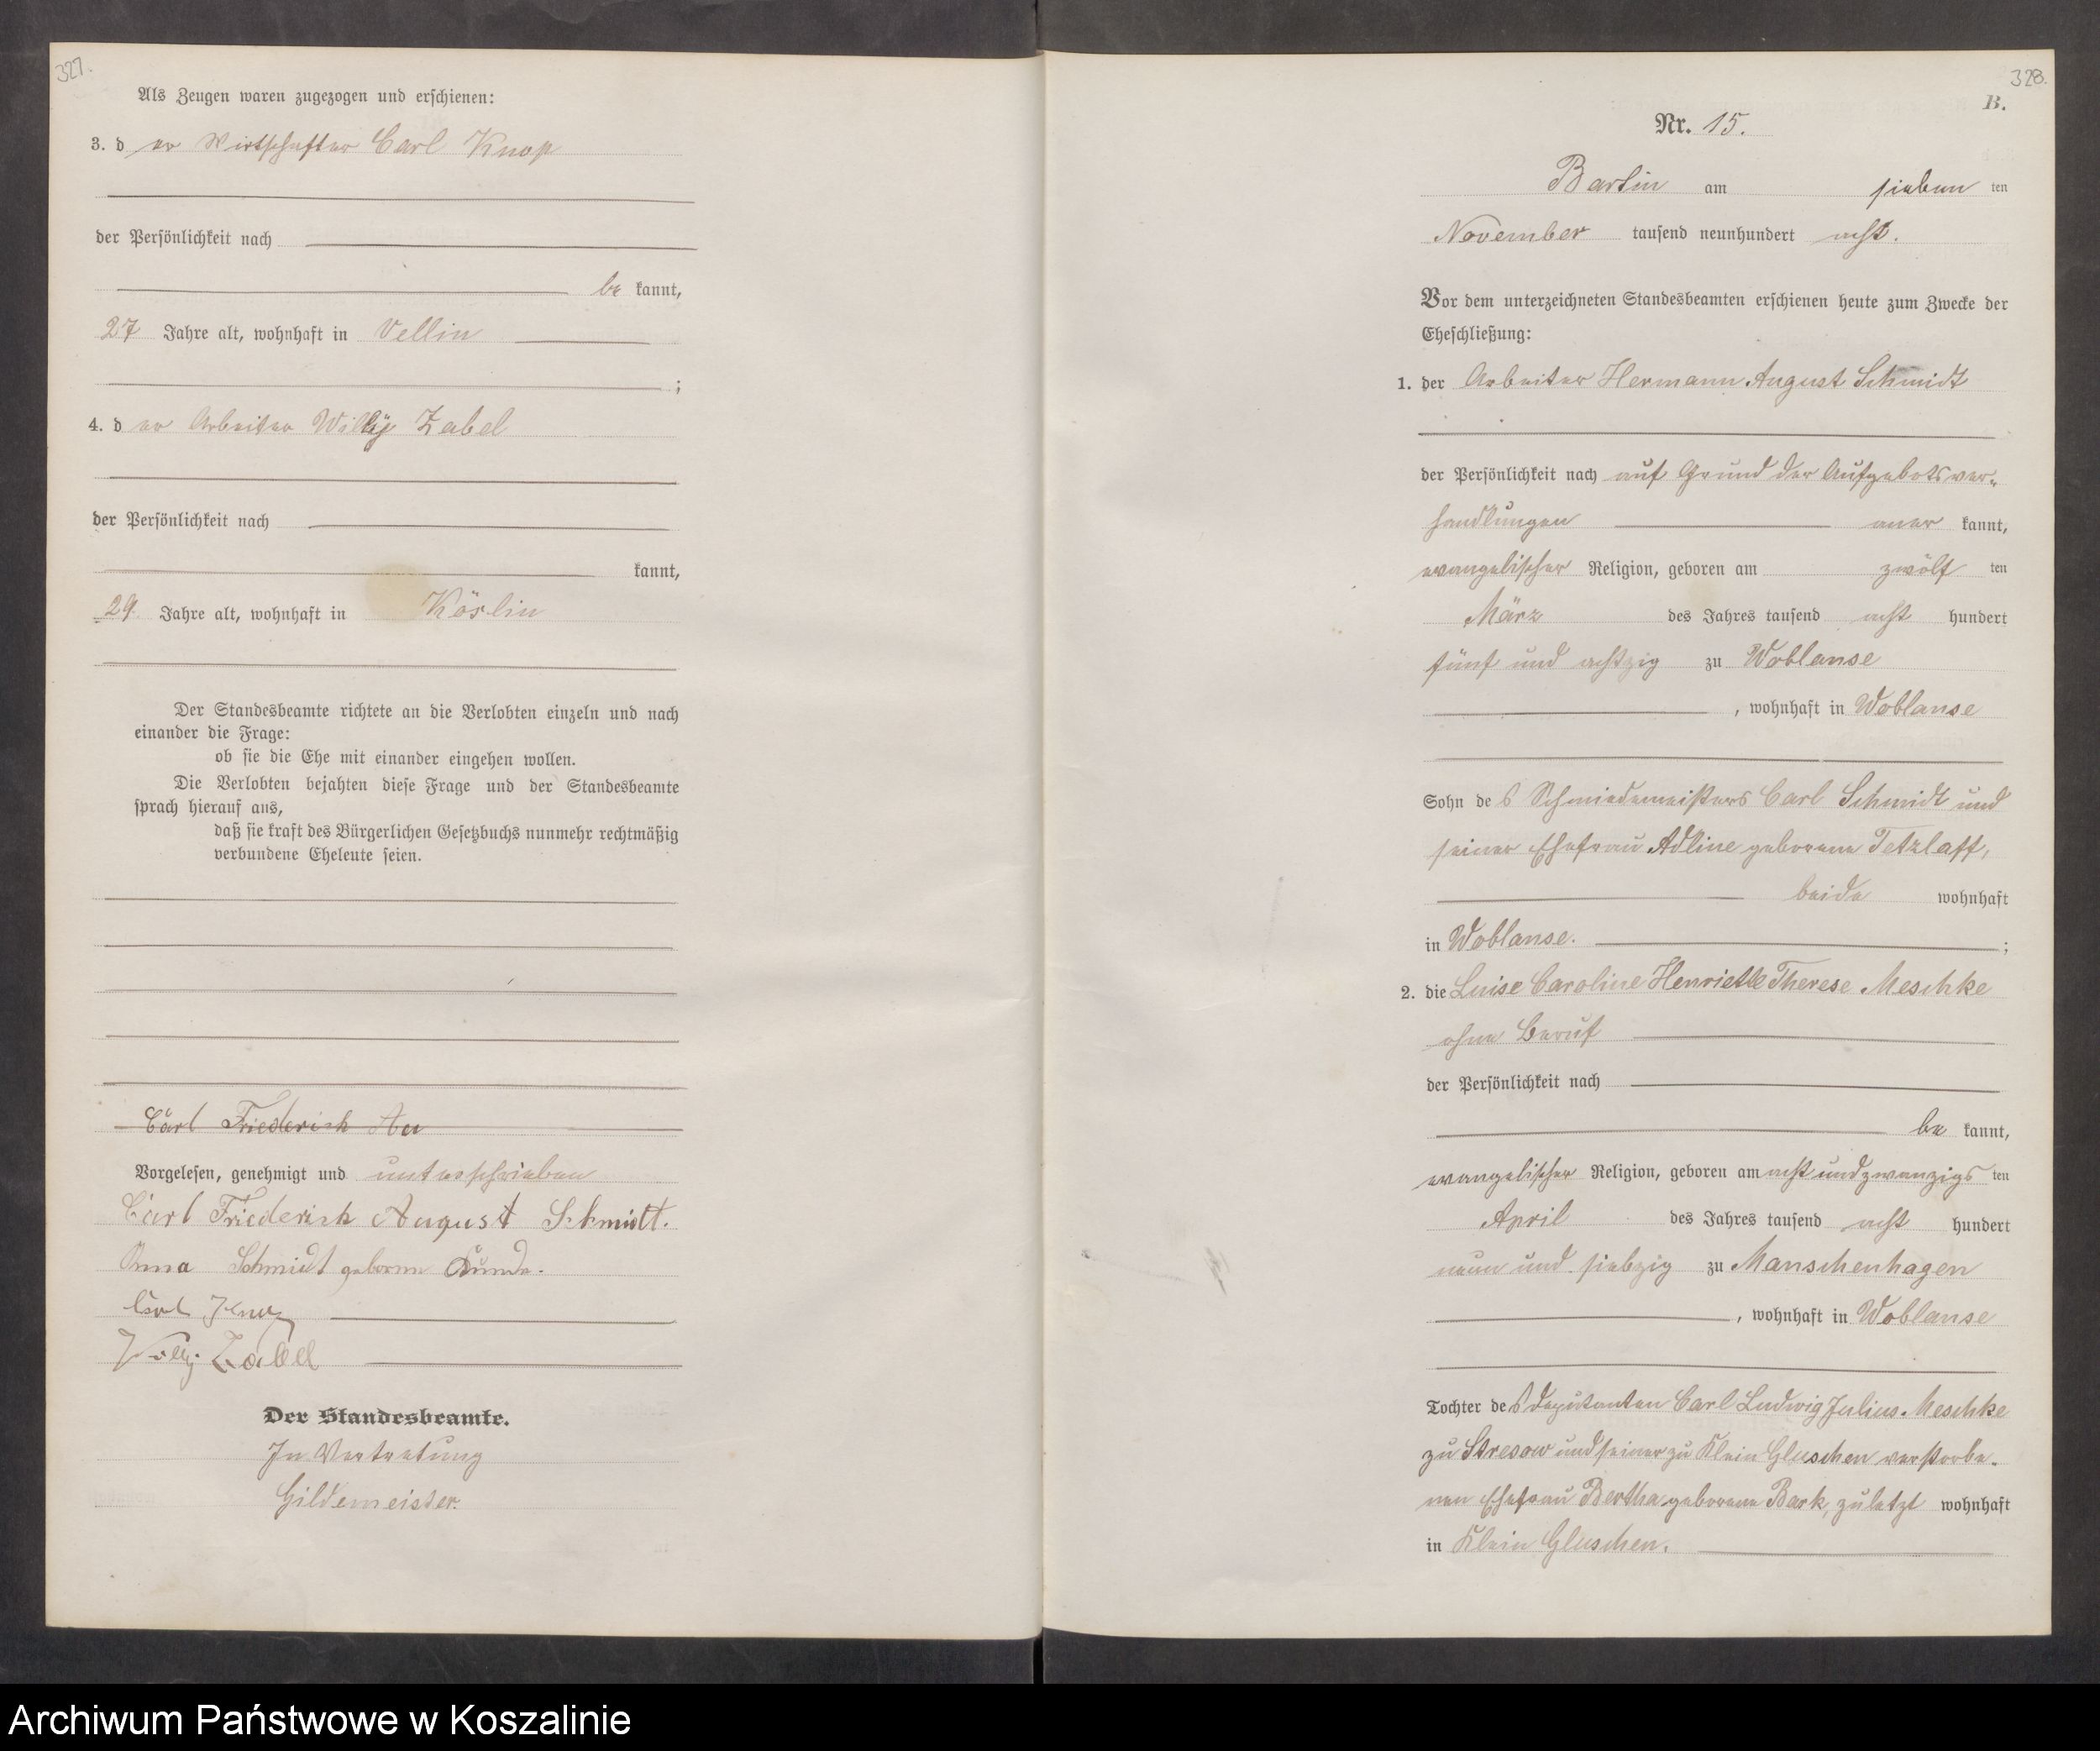 327.
Als Zeugen waren zugezogen und erschienen:
3. d er Wirtschafter Carl Knop
der Persönlichkeit nach
be kannt,
27 Jahre alt, wohnhaft in Vellin
;
4. d er Arbeiter Willy Zabel
der Persönlichkeit nach
kannt,
29 Jahre alt, wohnhaft in Köslin
Der Standesbeamte richtete an die Verlobten einzeln und nach
einander die Frage:
ob sie die Ehe mit einander eingehen wollen.
Die Verlobten bejahten diese Frage und der Standesbeamte
sprach hierauf aus,
daß sie kraft des Bürgerlichen Gesetzbuchs nunmehr rechtmäßig
verbundene Eheleute seien.
Carl Friederich Au
Vorgelesen, genehmigt und unterschrieben
Carl Friederich August Schmidt.
Anna Schmidt geborne
Carl Knop
Willy Zabel
Der Standesbeamte.
In Vertretung
Gildemeister.
328.
B.
Nr. 15.
Bartin am sieben ten
November tausend neunhundert acht.
Vor dem unterzeichneten Standesbeamten erschienen heute zum Zwecke der
Eheschließung:
1. der Arbeiter Hermann August Schmidt
der Persönlichkeit nach auf Grund der Aufgebotsver-
handlungen aner kannt,
evangelischer Religion, geboren am zwölf ten
März des Jahres tausend acht hundert
fünf und achtzig zu Woblanse
, wohnhaft in Woblanse
Sohn de s Schmiedemeisters Carl Schmidt und
seiner Ehefrau Adline geborene Tetzlaff,
beide wohnhaft
in Woblanse. ;
2. die Luise Caroline Henriette Therese Meschke
ohne Beruf
der Persönlichkeit nach
be kannt,
evangelischer Religion, geboren am acht und zwanzigs ten
April des Jahres tausend acht hundert
neun und siebzig zu Manschenhagen
, wohnhaft in Woblanse
Tochter de s Deputanten Carl Ludwig Julius Meschke
zu Stresow und seiner zu Klein Gluschen verstorbe-
nen Ehefrau Bertha geborene Bark, zuletzt wohnhaft
in Klein Gluschen.
Archiwum Państwowe w Koszalinie